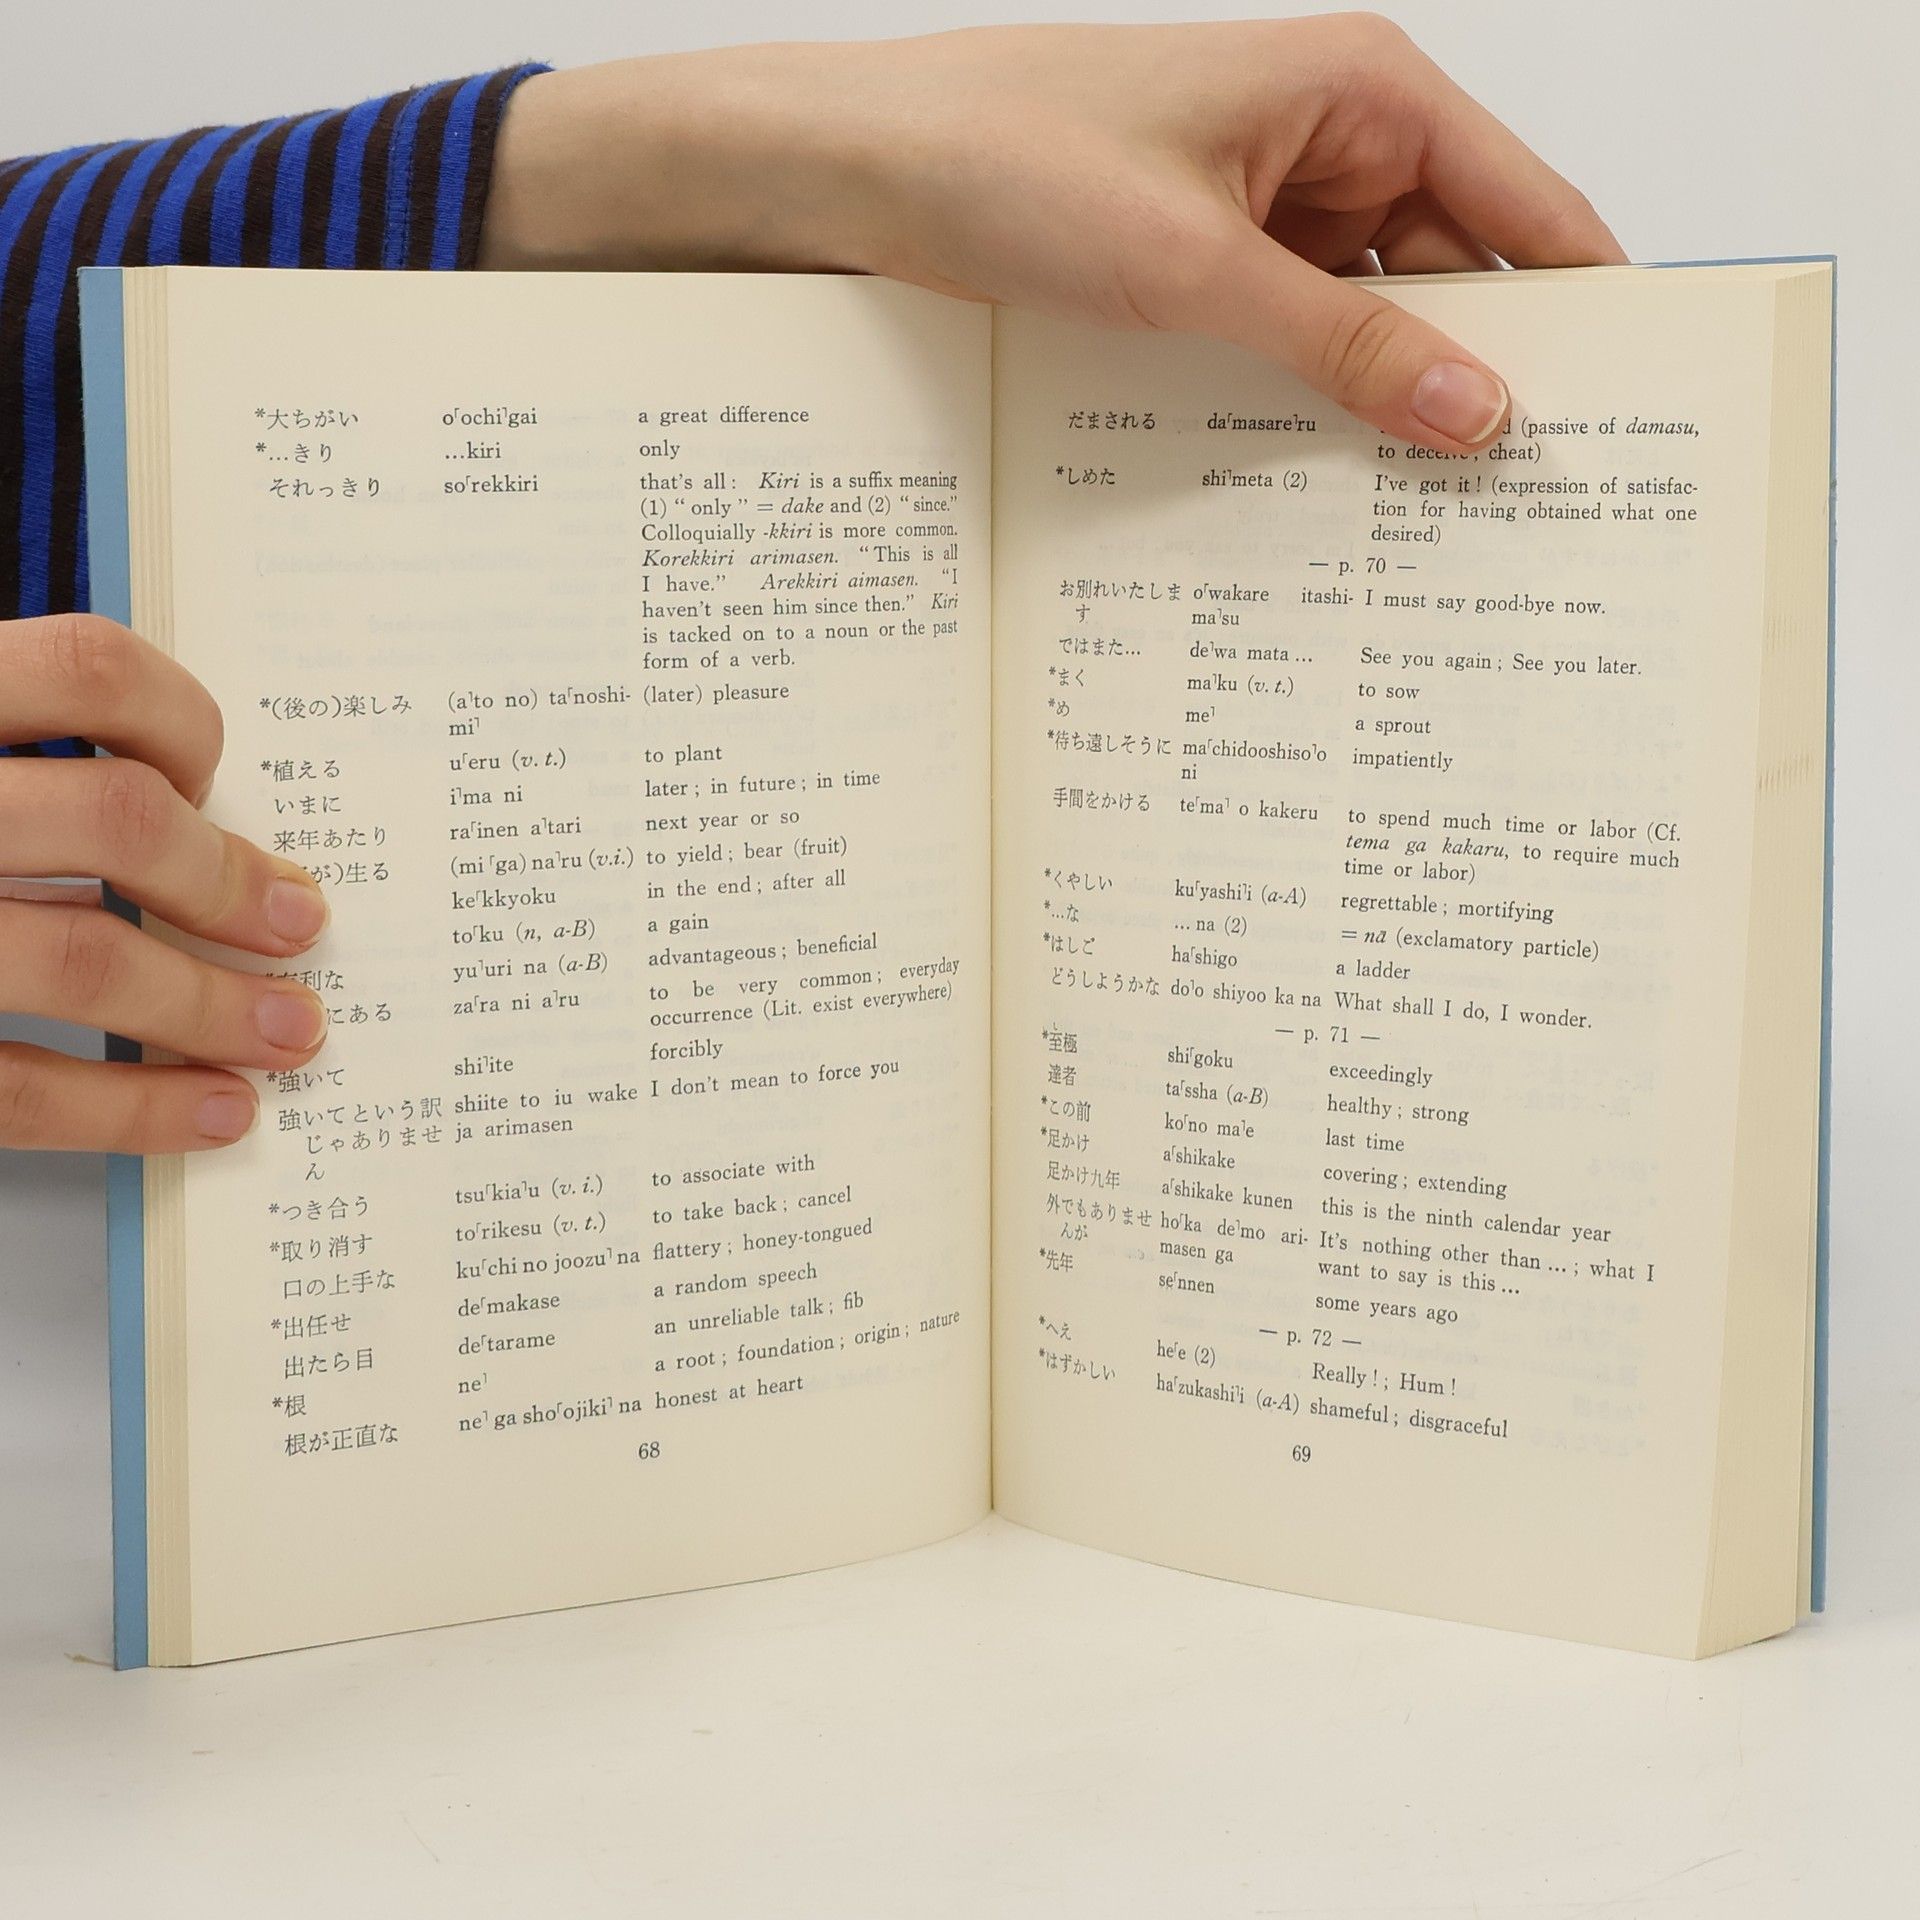 *大ちがい o⸢ochi⸣gai a great difference
*…きり …kiri only
それっきり so⸢rekkiri that's all : Kiri is a suffix meaning
(1) “ only ” = dake and (2) “ since.”
Colloquially -kkiri is more common.
Korekkiri arimasen. “ This is all
I have.” Arekkiri aimasen. “I
haven't seen him since then.” Kiri
is tacked on to a noun or the past
form of a verb.
*(後の)楽しみ (a⸣to no) ta⸢noshi- (later) pleasure
mi⸣
*植える u⸢eru (v. t.) to plant
いまに i⸣ma ni later ; in future ; in time
来年あたり ra⸢inen a⸣tari next year or so
が)生る (mi ⸢ga) na⸣ru (v.i.) to yield ; bear (fruit)
ke⸢kkyoku in the end ; after all
to⸢ku (n, a-B) a gain
利な yu⸣uri na (a-B) advantageous ; beneficial
にある za⸢ra ni a⸣ru to be very common ; everyday
occurrence (Lit. exist everywhere)
*強いて shi⸣ite forcibly
強いてという訳 shiite to iu wake I don't mean to force you
じゃありませ ja arimasen
ん
*つき合う tsu⸢kia⸣u (v. i.) to associate with
*取り消す to⸢rikesu (v. t.) to take back ; cancel
口の上手な ku⸢chi no joozu⸣ na flattery ; honey-tongued
*出任せ de⸢makase a random speech
出たら目 de⸢tarame an unreliable talk ; fib
*根 ne⸣ a root ; foundation ; origin ; nature
根が正直な ne⸣ ga sho⸢ojiki⸣ na honest at heart
68
だまされる da⸢masare⸣ru (passive of damasu,
to deceive, cheat)
*しめた shi⸣meta (2) I've got it ! (expression of satisfac-
tion for having obtained what one
desired)
— p. 70 —
お別れいたしま o⸢wakare itashi- I must say good-bye now.
す ma⸣su
ではまた… de⸣wa mata … See you again ; See you later.
*まく ma⸣ku (v. t.) to sow
*め me⸣ a sprout
*待ち遠しそうに ma⸢chidooshiso⸣o impatiently
ni
手間をかける te⸢ma⸣ o kakeru to spend much time or labor (Cf.
tema ga kakaru, to require much
time or labor)
*くやしい ku⸢yashi⸣i (a-A) regrettable ; mortifying
*…な … na (2) = nā (exclamatory particle)
*はしご ha⸢shigo a ladder
どうしようかな do⸣o shiyoo ka na What shall I do, I wonder.
— p. 71 —
*至極 shi⸢goku exceedingly
達者 ta⸢ssha (a-B) healthy ; strong
*この前 ko⸢no ma⸣e last time
*足かけ a⸢shikake covering ; extending
足かけ九年 a⸢shikake kunen this is the ninth calendar year
外でもありませ ho⸢ka de⸣mo ari- It's nothing other than … ; what I
んが masen ga want to say is this …
*先年 se⸢nnen some years ago
— p. 72 —
*へえ he⸢e (2) Really ! ; Hum !
*はずかしい ha⸢zukashi⸣i (a-A) shameful ; disgraceful
69